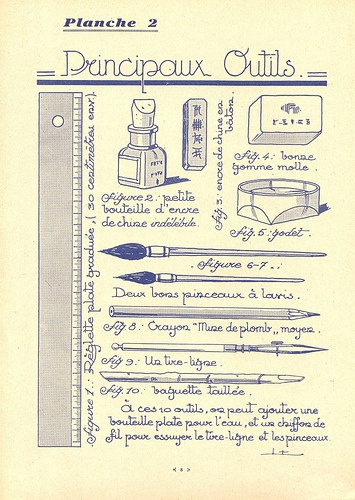 Planche 2
Principaux Outils.
Figure 1.: Réglette plate graduée, (30 centimètres env.)
Figure 2.: petite
bouteille d'encre
de chine indélébile.
Fig. 3: encre de chine en
bâton.
Fig. 4: bonne
gomme molle.
Fig. 5: godet.
Figure 6-7..
Deux bons pinceaux à lavis.
Fig 8: Crayon "Mine de plomb" moyen.
Fig 9: Un tire-ligne.
Fig. 10: baguette taillée.
À ces 10 outils, on peut ajouter une
bouteille plate pour l'eau, et un chiffon de
fil pour essuyer le tire-ligne et les pinceaux.
< 8 >